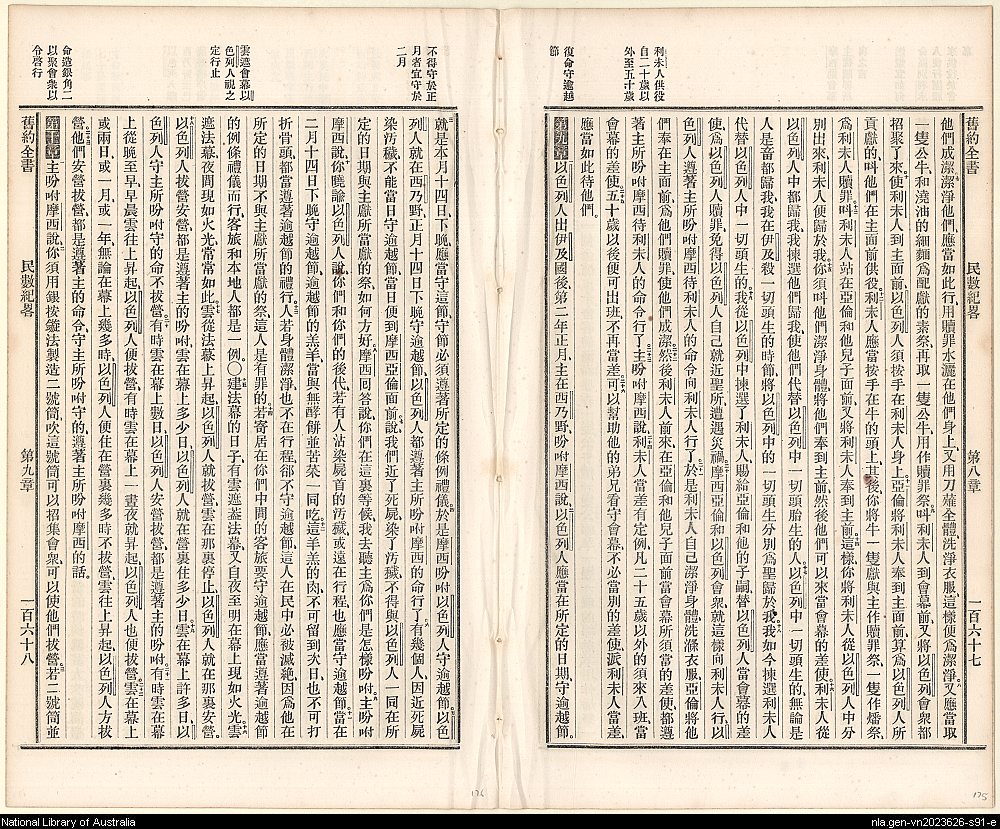 舊約全書 民數紀畧 第八章 一百六十七
利未人供役
自二十歲以
外至五十歲
復命守逾越
節
他們成潔潔淨他們應當如此行用贖罪水灑在他們身上又用刀薙全體洗淨衣服這樣便爲潔淨又應當取
一隻公牛和澆油的細麵爲配獻的素祭再取一隻公牛用作贖罪祭叫利未人到會幕前又將以色列會衆都
招聚了來使利未人到主面前以色列人須按手在利未人身上亞倫將利未人奉到主面前算爲以色列人所
貢獻的叫他們在主面前供役利未人應當按手在牛的頭上其後你將牛一隻獻與主作贖罪祭一隻作燔祭
爲利未人贖罪叫利未人站在亞倫和他兒子面前又將利未人奉到主前這樣你將利未人從以色列人中分
別出來利未人便歸於我你須叫他們潔淨身體將他們奉到主前然後他們可以來當會幕的差使利未人從
以色列人中都歸我我揀選他們歸我使他們代替以色列中一切頭胎生的人以色列中一切頭生的無論是
人是畜都歸我我在伊及殺一切頭生的時節將以色列中的一切頭生分別爲聖歸於我我如今揀選利未人
代替以色列人中一切頭生的我從以色列中揀選了利未人賜給亞倫和他的子嗣替以色列人當會幕的差
使爲以色列人贖罪免得以色列人自己就近聖所遭遇災禍摩西亞倫和以色列會衆就這樣向利未人行以
色列人遵著主所吩咐摩西待利未人的命令向利未人行了於是利未人自己潔淨身體洗滌衣服亞倫將他
們奉在主面前爲他們贖罪使他們成潔然後利未人前來在亞倫和他兒子面前當會幕所須當的差使都遵
著主所吩咐摩西待利未人的命令行了主吩咐摩西說利未人當有定例凡二十五歲以外的須來入班當
會幕的差使五十歲以後便可出班不再當差可以幫助他的弟兄看守會幕不必當別的差使派利未人當差
應當如此待他們
第九章以色列人出伊及國後第二年正月主在西乃野吩咐摩西說以色列人應當在所定的日期守逾越節
不得守於正
月者宜守於
二月
雲遮會幕以
色列人視之
定行止
命造銀角二
以聚會衆以
令啓行
就是本月十四日下晚應當守這節守節必須遵著所定的條例禮儀於是摩西吩咐以色列人守逾越節以色
列人就在西乃野正月十四日下晚守逾越節以色列人都遵著主所吩咐摩西的命行了有幾個人因近死屍
染汚穢不能當日守逾越節當日便到摩西亞倫面前說我們近了死屍染了汚穢不得與以色列人一同在所
定的日期與主獻所當獻的祭如何方好摩西回答說你們在這裏等候我去聽主爲你們是怎樣吩咐主吩咐
摩西說你曉諭以色列人說你們和你們的後代若有人沾染屍首的汚穢或遠在行程也應當守逾越節當在
二月十四日下晚守逾越節逾越節的羔羊當與無酵餅並苦菜一同吃這羊羔的肉不可留到次日也不可打
折骨頭都當遵著逾越節的禮行人若身體潔淨也不在行程卻不守逾越節這人在民中必被滅絕因爲他在
所定的日期不與主獻所當獻的祭這人是有罪的若寄居在你們中間的客旅要守逾越節應當遵著逾越節
的例條禮儀而行客旅和本地人都是一例〇建法幕的日子有雲遮葢法幕又自夜至明在幕上現如火光雲
遮法幕夜間現如火光常常如此雲從法幕上昇起以色列人就拔營雲在那裏停止以色列人就在那裏安營
以色列人拔營安營都是遵著主的吩咐雲在幕上多少日以色列人就在營裏住多少日雲在幕上許多日以
色列人守主所吩咐守的命不拔營有時雲在幕上數日以色列人安營拔營都是遵著主的吩咐有時雲在幕
上從晚至早早晨雲往上昇起以色列人便拔營有時雲在幕上一晝夜就昇起以色列人也便拔營雲在幕上
或兩日或一月或一年無論在幕上幾多時以色列人便住在營裏幾多時不拔營雲往上昇起以色列人方拔
營他們安營拔營都是遵著主的命令守主所吩咐守的遵著主所吩咐摩西的話
第十章主吩咐摩西說你須用銀按鏇法製造二號筒吹這號筒可以招集會衆可以使他們拔營若二號筒並
舊約全書 民數紀畧 第九章 一百六十八
176
175
National Library of Australia
nla.gen-vn2023626-s91-e